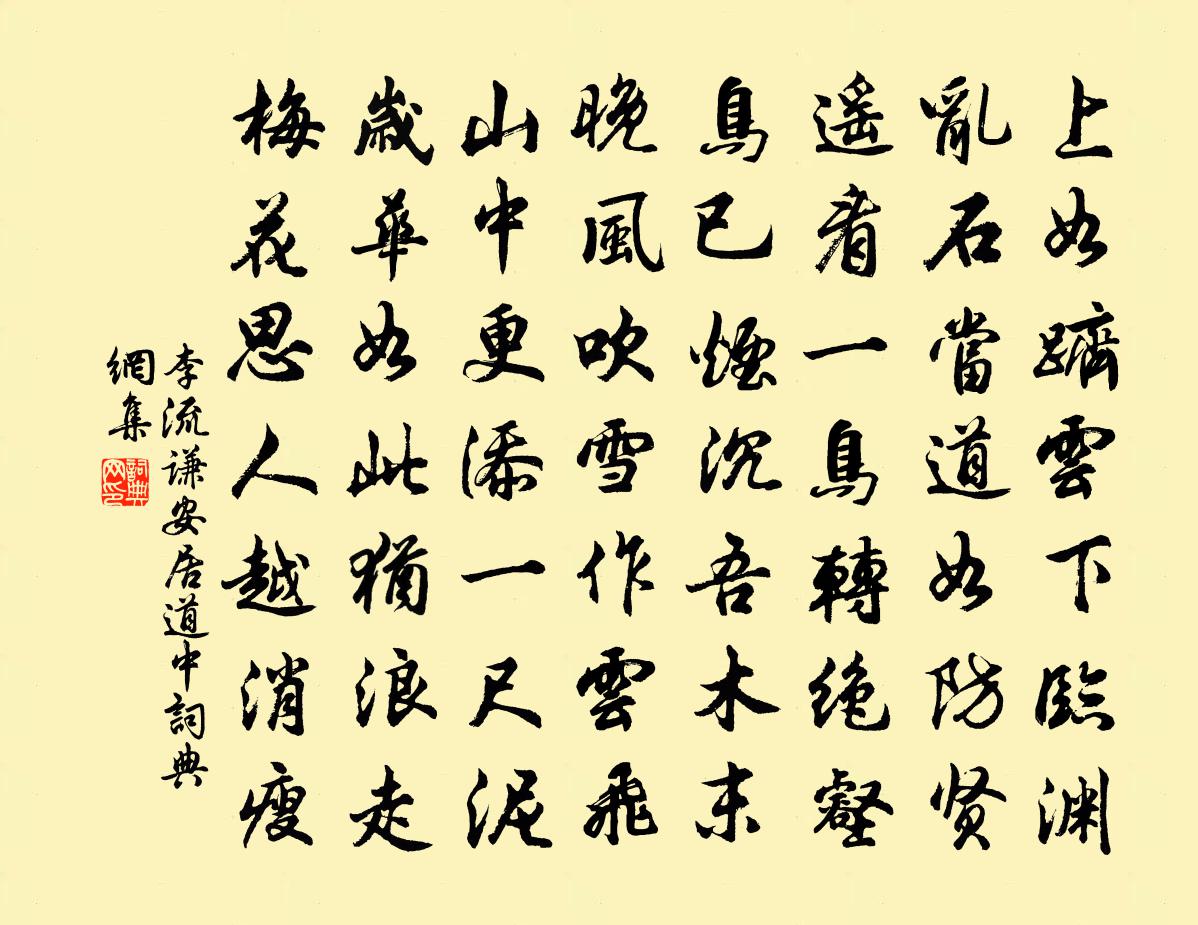 上如躋雲下臨渊
亂石當道如防贤
遥看一鳥轉绝壑
鳥已煙沉吾木末
晚風吹雪作雲飛
山中更添一尺泥
歲華如此猶浪走
梅花思人越消瘦
李流谦安居道中詞典
網集
詞典
网印